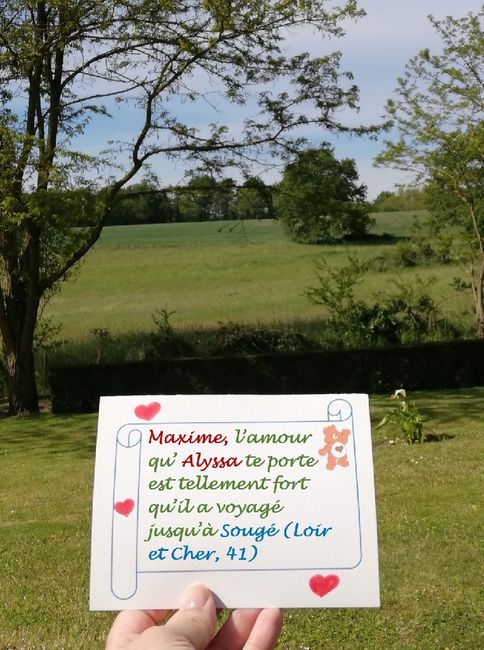 Maxime, l'amour
qu' Alyssa te porte
est tellement fort
qu'il a voyagé
jusqu'à Sougé (Loir
et Cher, 41)